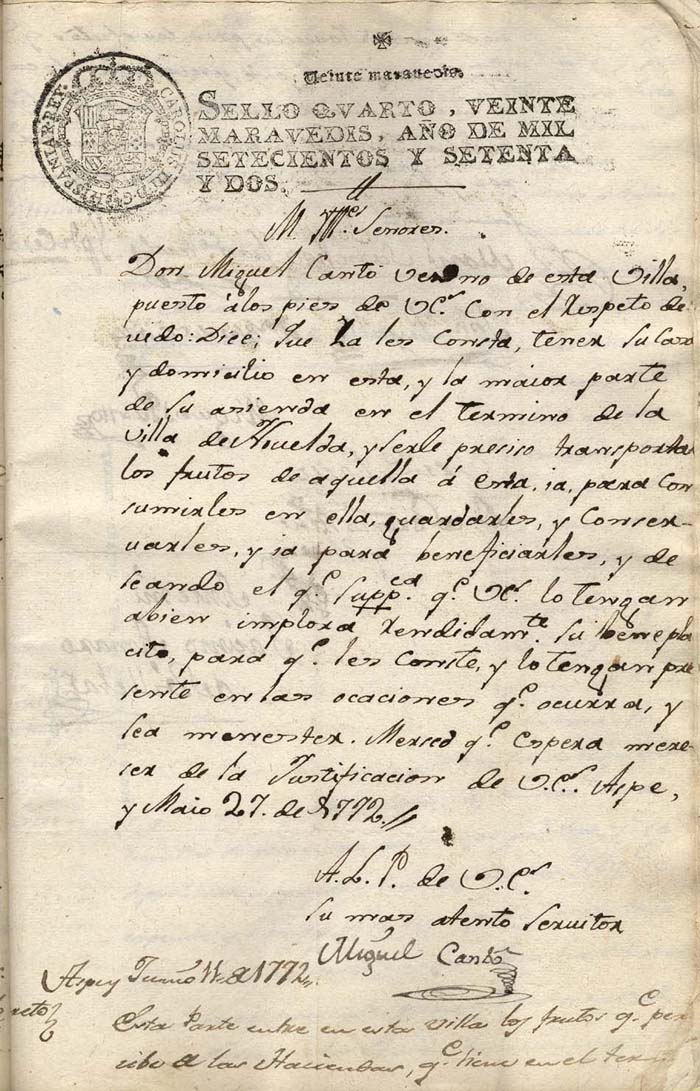 Veinte maravedis.
SELLO QVARTO, VEINTE
MARAVEDIS, AÑO DE MIL
SETECIENTOS Y SETENTA
Y DOS.
CAROLUS III D G HISPANIAR REX
M. Ill.es Senores.
Don Miguel Cantó vecino de esta Villa,
puesto á los pies de V.Cs. Con el respeto de
uido: Dice; que ya les Consta, tener su Casa
y domicilio en esta, y la maior parte
de su asienda en el termino de la
villa de Nuelda, y serle preciso transportar
los frutos de aquella á esta, ia, para Con
sumirles en ella, guardarles, y Conser
uarles, y ia para beneficiarles, y de
seando el q.e supp.ca q.e V.Cs. lo tengan
abien implora rendidam.te su benepla
cito, para q.e les Conste, y lo tengan pre
sente en las ocaciones q.e ocurra, y
sea menester. Merced q.e espera mere
ser de la Justificacion de V.Cs. Aspe,
y Maio 27. de 1772.
A. L. P. de V.Cs.
su mas atento seruitor
Miguel Cantó
Aspe y Junio 11 de 1772
Esta Parte entre en esta villa los frutos q.e per
cibe de las Haciendas, q.e tiene en el term